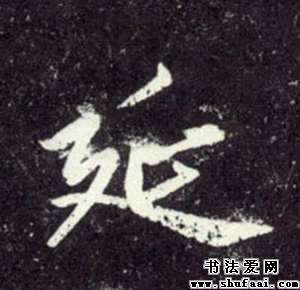 延
书法爱网
www.shufaai.com